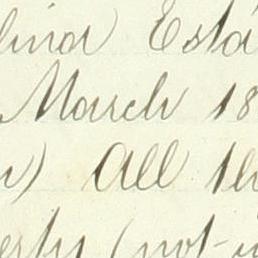 lina Esta
March 18
) All th
erty (not-